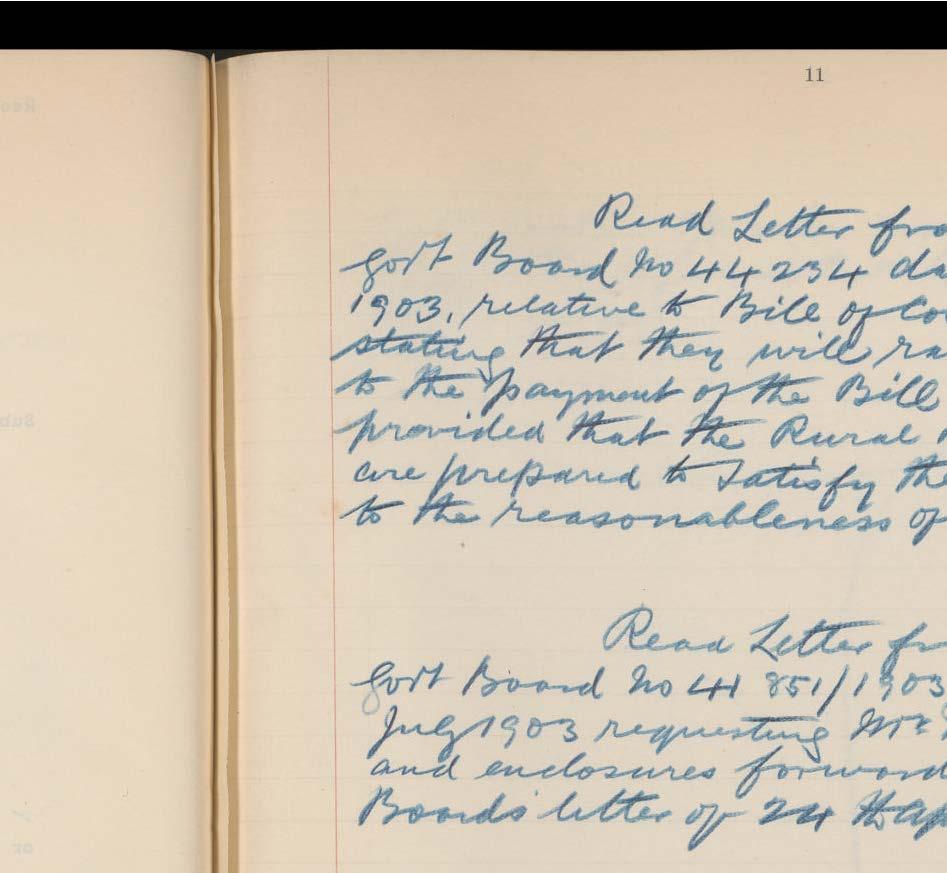 11
Read Letter fro
Govt Board No 44234 da
1903, relative to Bill of Co
stating that they will ra
to the payment of the Bill
provided that the Rural
are prepared to satisfy the
to the reasonableness of
Read Letter fr
Govt Board No 41851/1903
July 1903 requesting Mr
and enclosures forward
Boards letter of 24th Ap